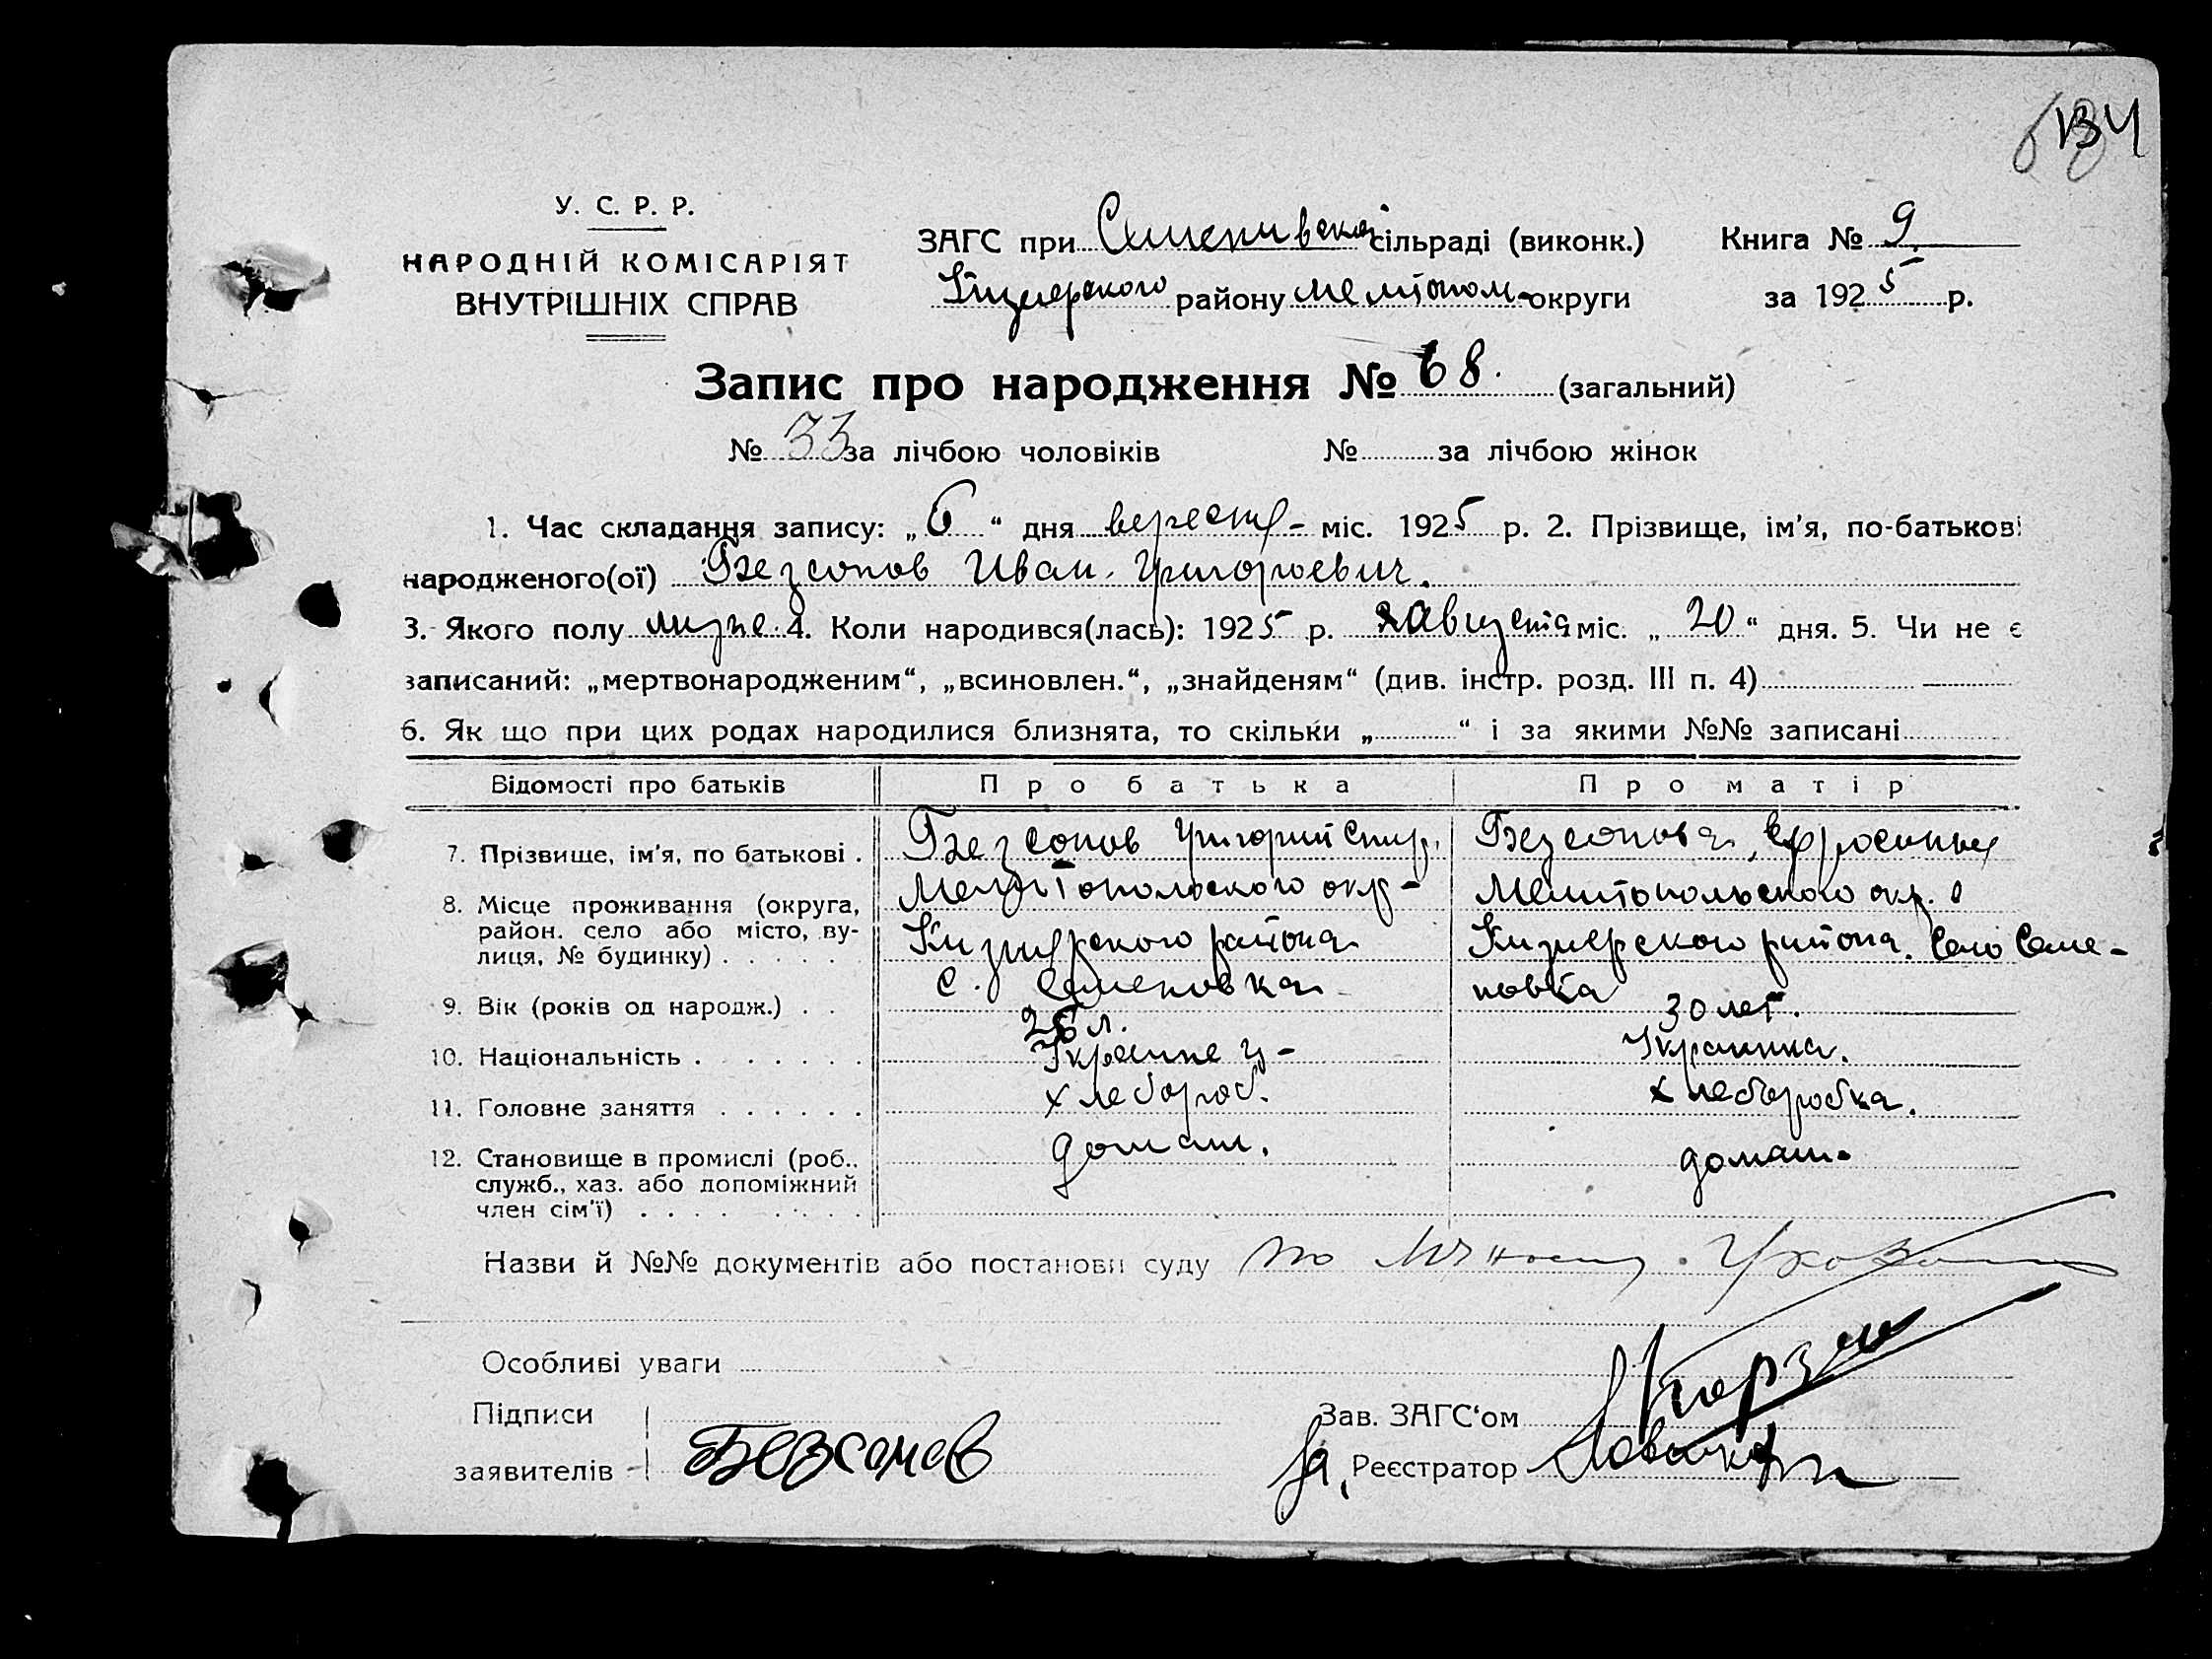 134
У. С. Р. Р.
НАРОДНІЙ КОМІСАРІЯТ
ВНУТРІШНІХ СПРАВ
ЗАГС при Семенивской сільраді (виконк.)
Книга № 9.
Кизиерского району Мелитопол- округи
за 1925 р.
Запис про народження № 68. (загальний)
№ 33 за лічбою чоловіків № за лічбою жінок
1. Час складання запису: „ 6 “ дня вересня- міс. 1925 р. 2. Прізвище, ім'я, по-батькові
народженого(ої) Безсонов Иван Григорьевич.
3. Якого полу муже. 4. Коли народився(лась): 1925 р. Августа міс. „ 20 “ дня. 5. Чи не є
записаний: „мертвонародженим“, „всиновлен.“, „знайденям“ (див. інстр. розд. III п. 4)
6. Як що при цих родах народилися близнята, то скільки „ “ і за якими №№ записані
Відомості про батьків Про батька Про матір
7. Прізвище, ім'я, по батькові . Безсонов Григорий Спир. Безсонова, Ефросинья
8. Місце проживання (округа, Мелитопольского окр- Мелитопольского окр.
район. село або місто, ву- Кизиерского района Кизиерского района. Село Семе-
лиця, № будинку) . . . . . . с. Семеновка новка
9. Вік (років од народж.) . . 26 л. 30 лет.
10. Національність . . . . . . . Украинец- Украинка.
11. Головне заняття . . . . . . хлебороб. хлеборобка.
12. Становище в промислі (роб., домаш. домаш.
служб., хаз. або допоміжний
член сім'ї) . . . . . . . .
Назви й №№ документів або постанови суду по
Особливі уваги
Підписи
заявителів Безсонов
Зав. ЗАГС'ом
За, Реєстратор